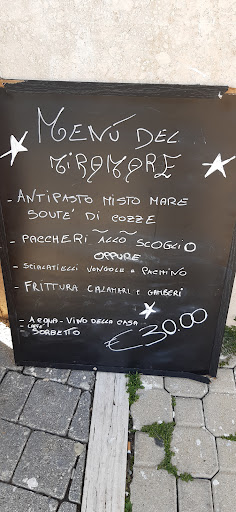 MENÙ DEL
MIRAMARE
- ANTIPASTO MISTO MARE
SOUTÈ DI COZZE
- PACCHERI ALLO SCOGLIO
OPPURE
- SCIALATIELLI VONGOLE e PACHINO
- FRITTURA CALAMARI e GAMBERI
- ACQUA - VINO DELLA CASA
- CAFFÈ
SORBETTO
€30.00